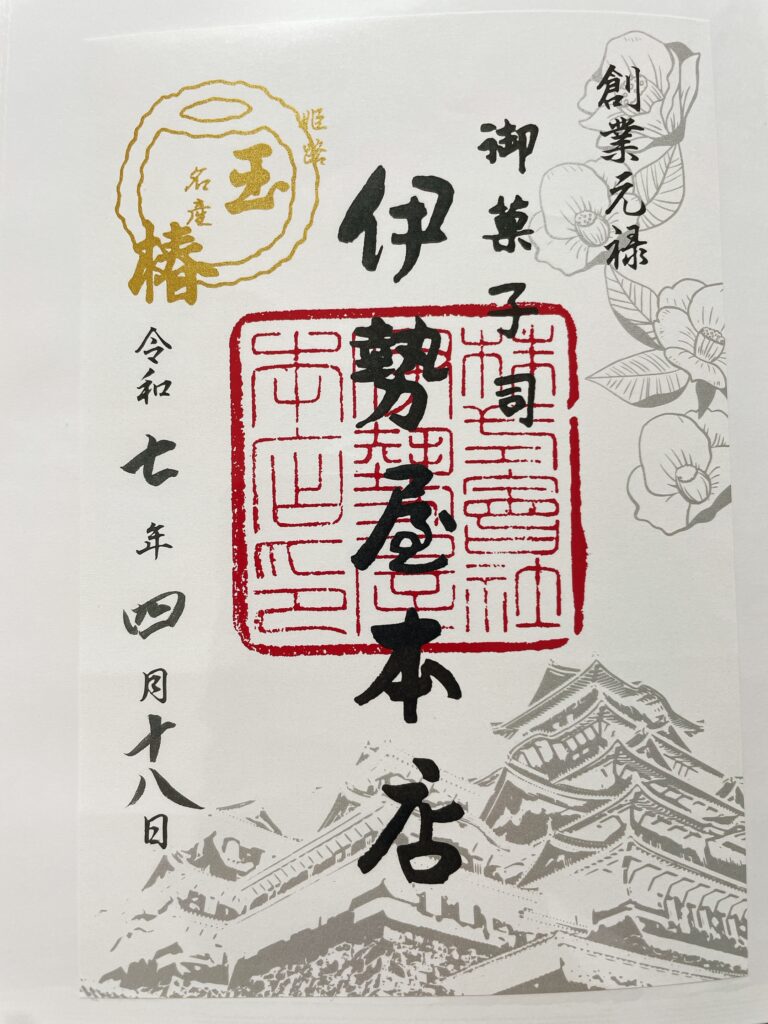 創業元禄
御菓子司
伊勢屋本店
株式會社
伊勢屋
本店印
姫路
名産
玉椿
令和七年四月十八日